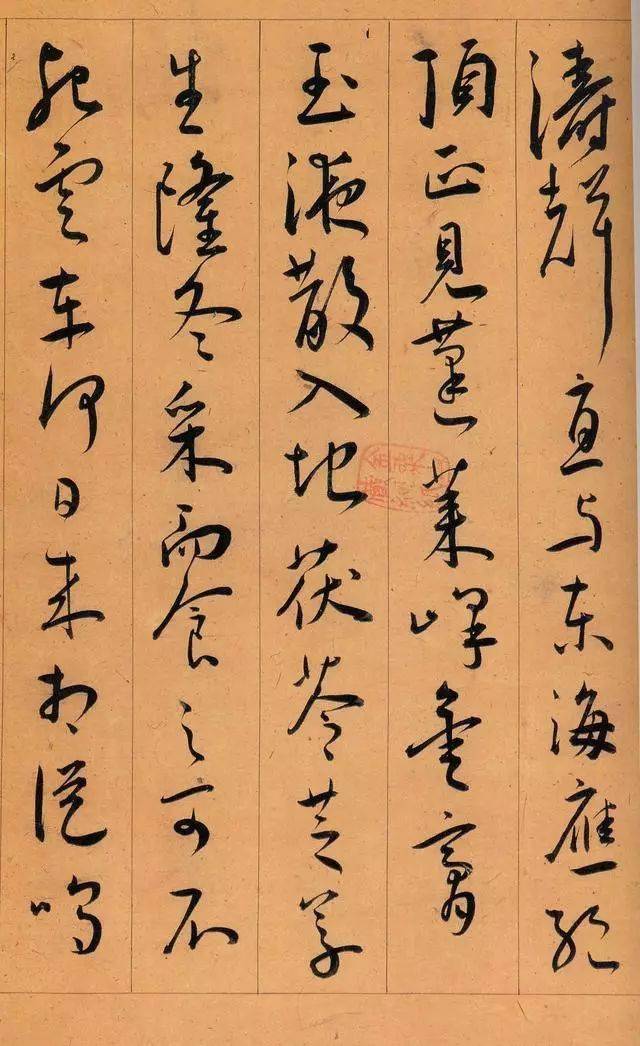 濤聲直與東海應絕
頂正見蓬萊峰金膏
玉液散入地茯苓芝草
生隆冬采而食之可不
死雲車何日來相從嗚